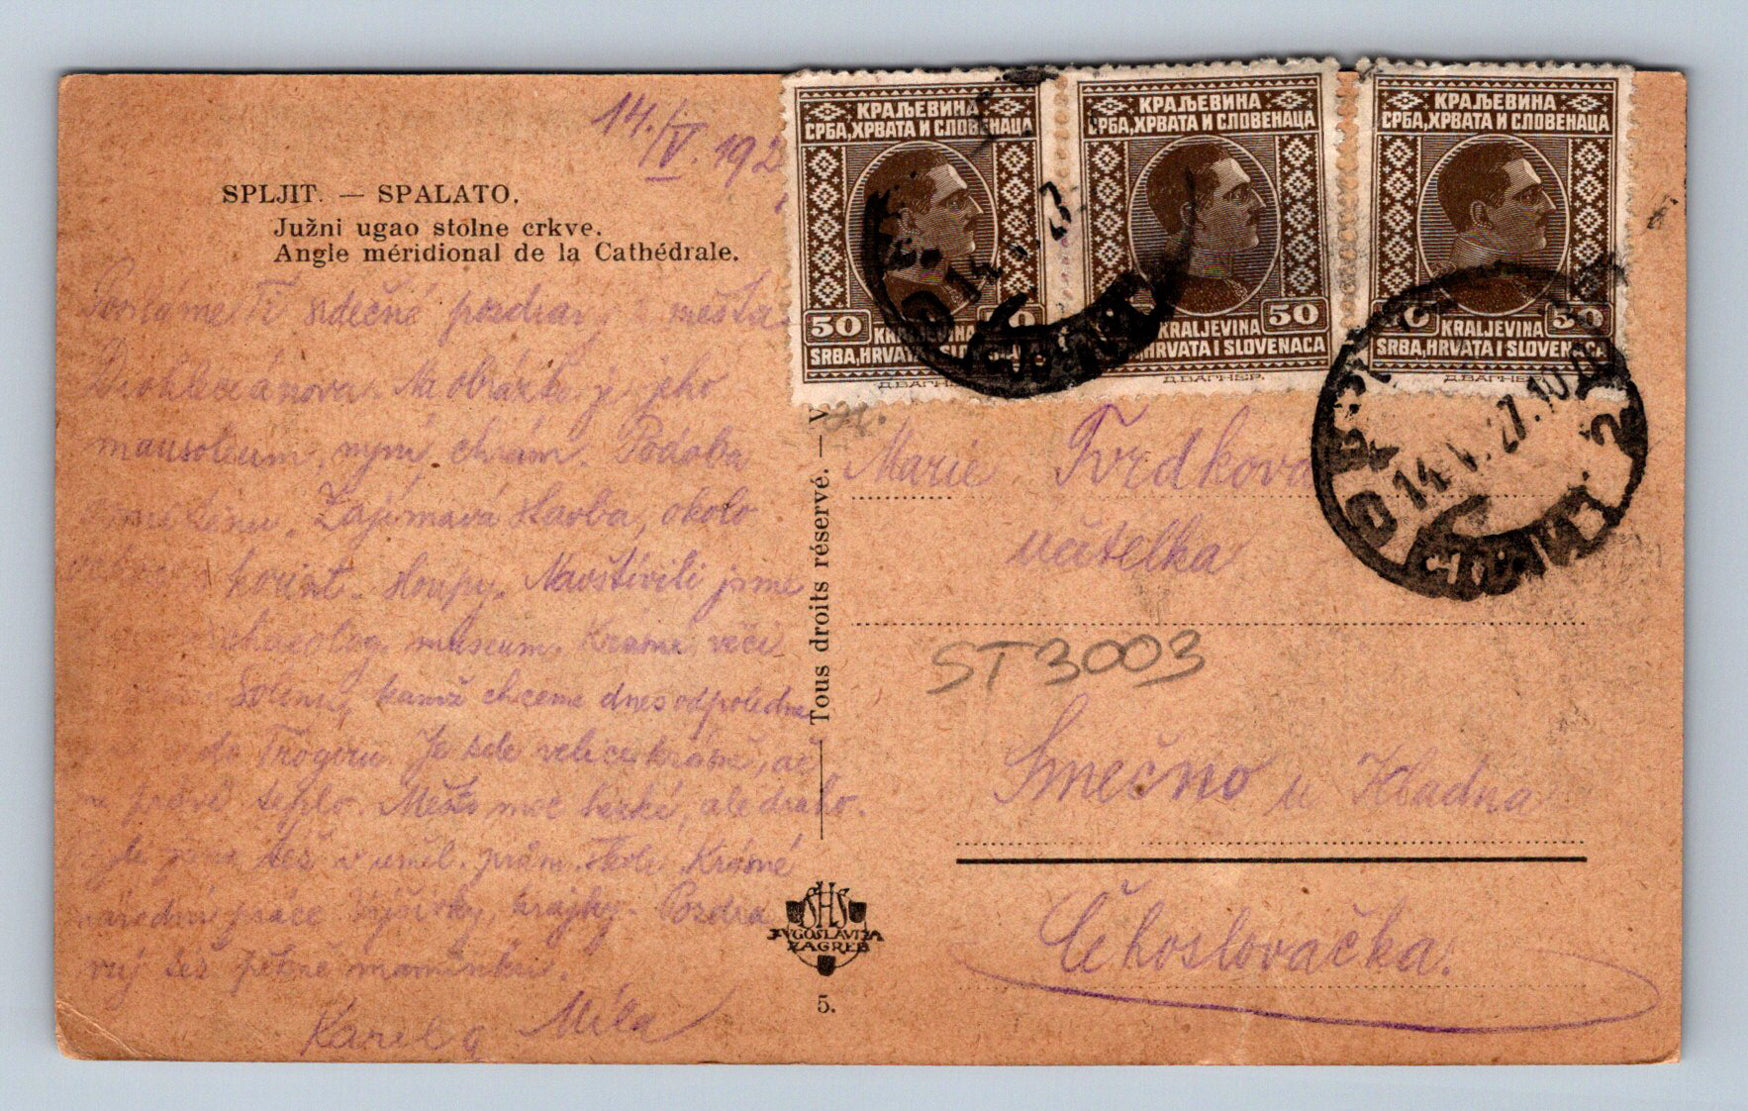 14./V. 192
SPLJIT. — SPALATO.
Južni ugao stolne crkve.
Angle méridional de la Cathédrale.
Posíláme Ti srdečné pozdravy z města
Diokleciánova. Na obrázku je jeho
mausoleum, nyní chrám. Podoba
Zajímavá stavba, okolo
korint. sloupy. Navštívili jsme
museum. Krásné věci
Solinu, kamž chceme dnes odpoledne
do Trogiru. Je zde velice krásně, ač
právě teplo. Město moc hezké, ale draho.
jsme též v uměl. prům. škole. Krásné
národní práce výšivky, krajky. Pozdra
vuj též pěkně maminku.
Karel a Míla
КРАЉЕВИНА
СРБА, ХРВАТА И СЛОВЕНАЦА
50 50
KRALJEVINA
SRBA, HRVATA I SLOVENACA
Д. ВАГНЕР.
КРАЉЕВИНА
СРБА, ХРВАТА И СЛОВЕНАЦА
50
KRALJEVINA
HRVATA I SLOVENACA
Д. ВАГНЕР.
КРАЉЕВИНА
СРБА, ХРВАТА И СЛОВЕНАЦА
50
KRALJEVINA
SRBA, HRVATA I SLOVENACA
Д. ВАГНЕР.
14. V. 27
14 V. 27. 10
SPLIT 2
Tous droits réservé. — V
Marie Tvrdkova
učitelka
ST3003
Smečno u Kladna
Čehoslovačka.
SHS
JUGOSLAVIJA
ZAGREB
5.